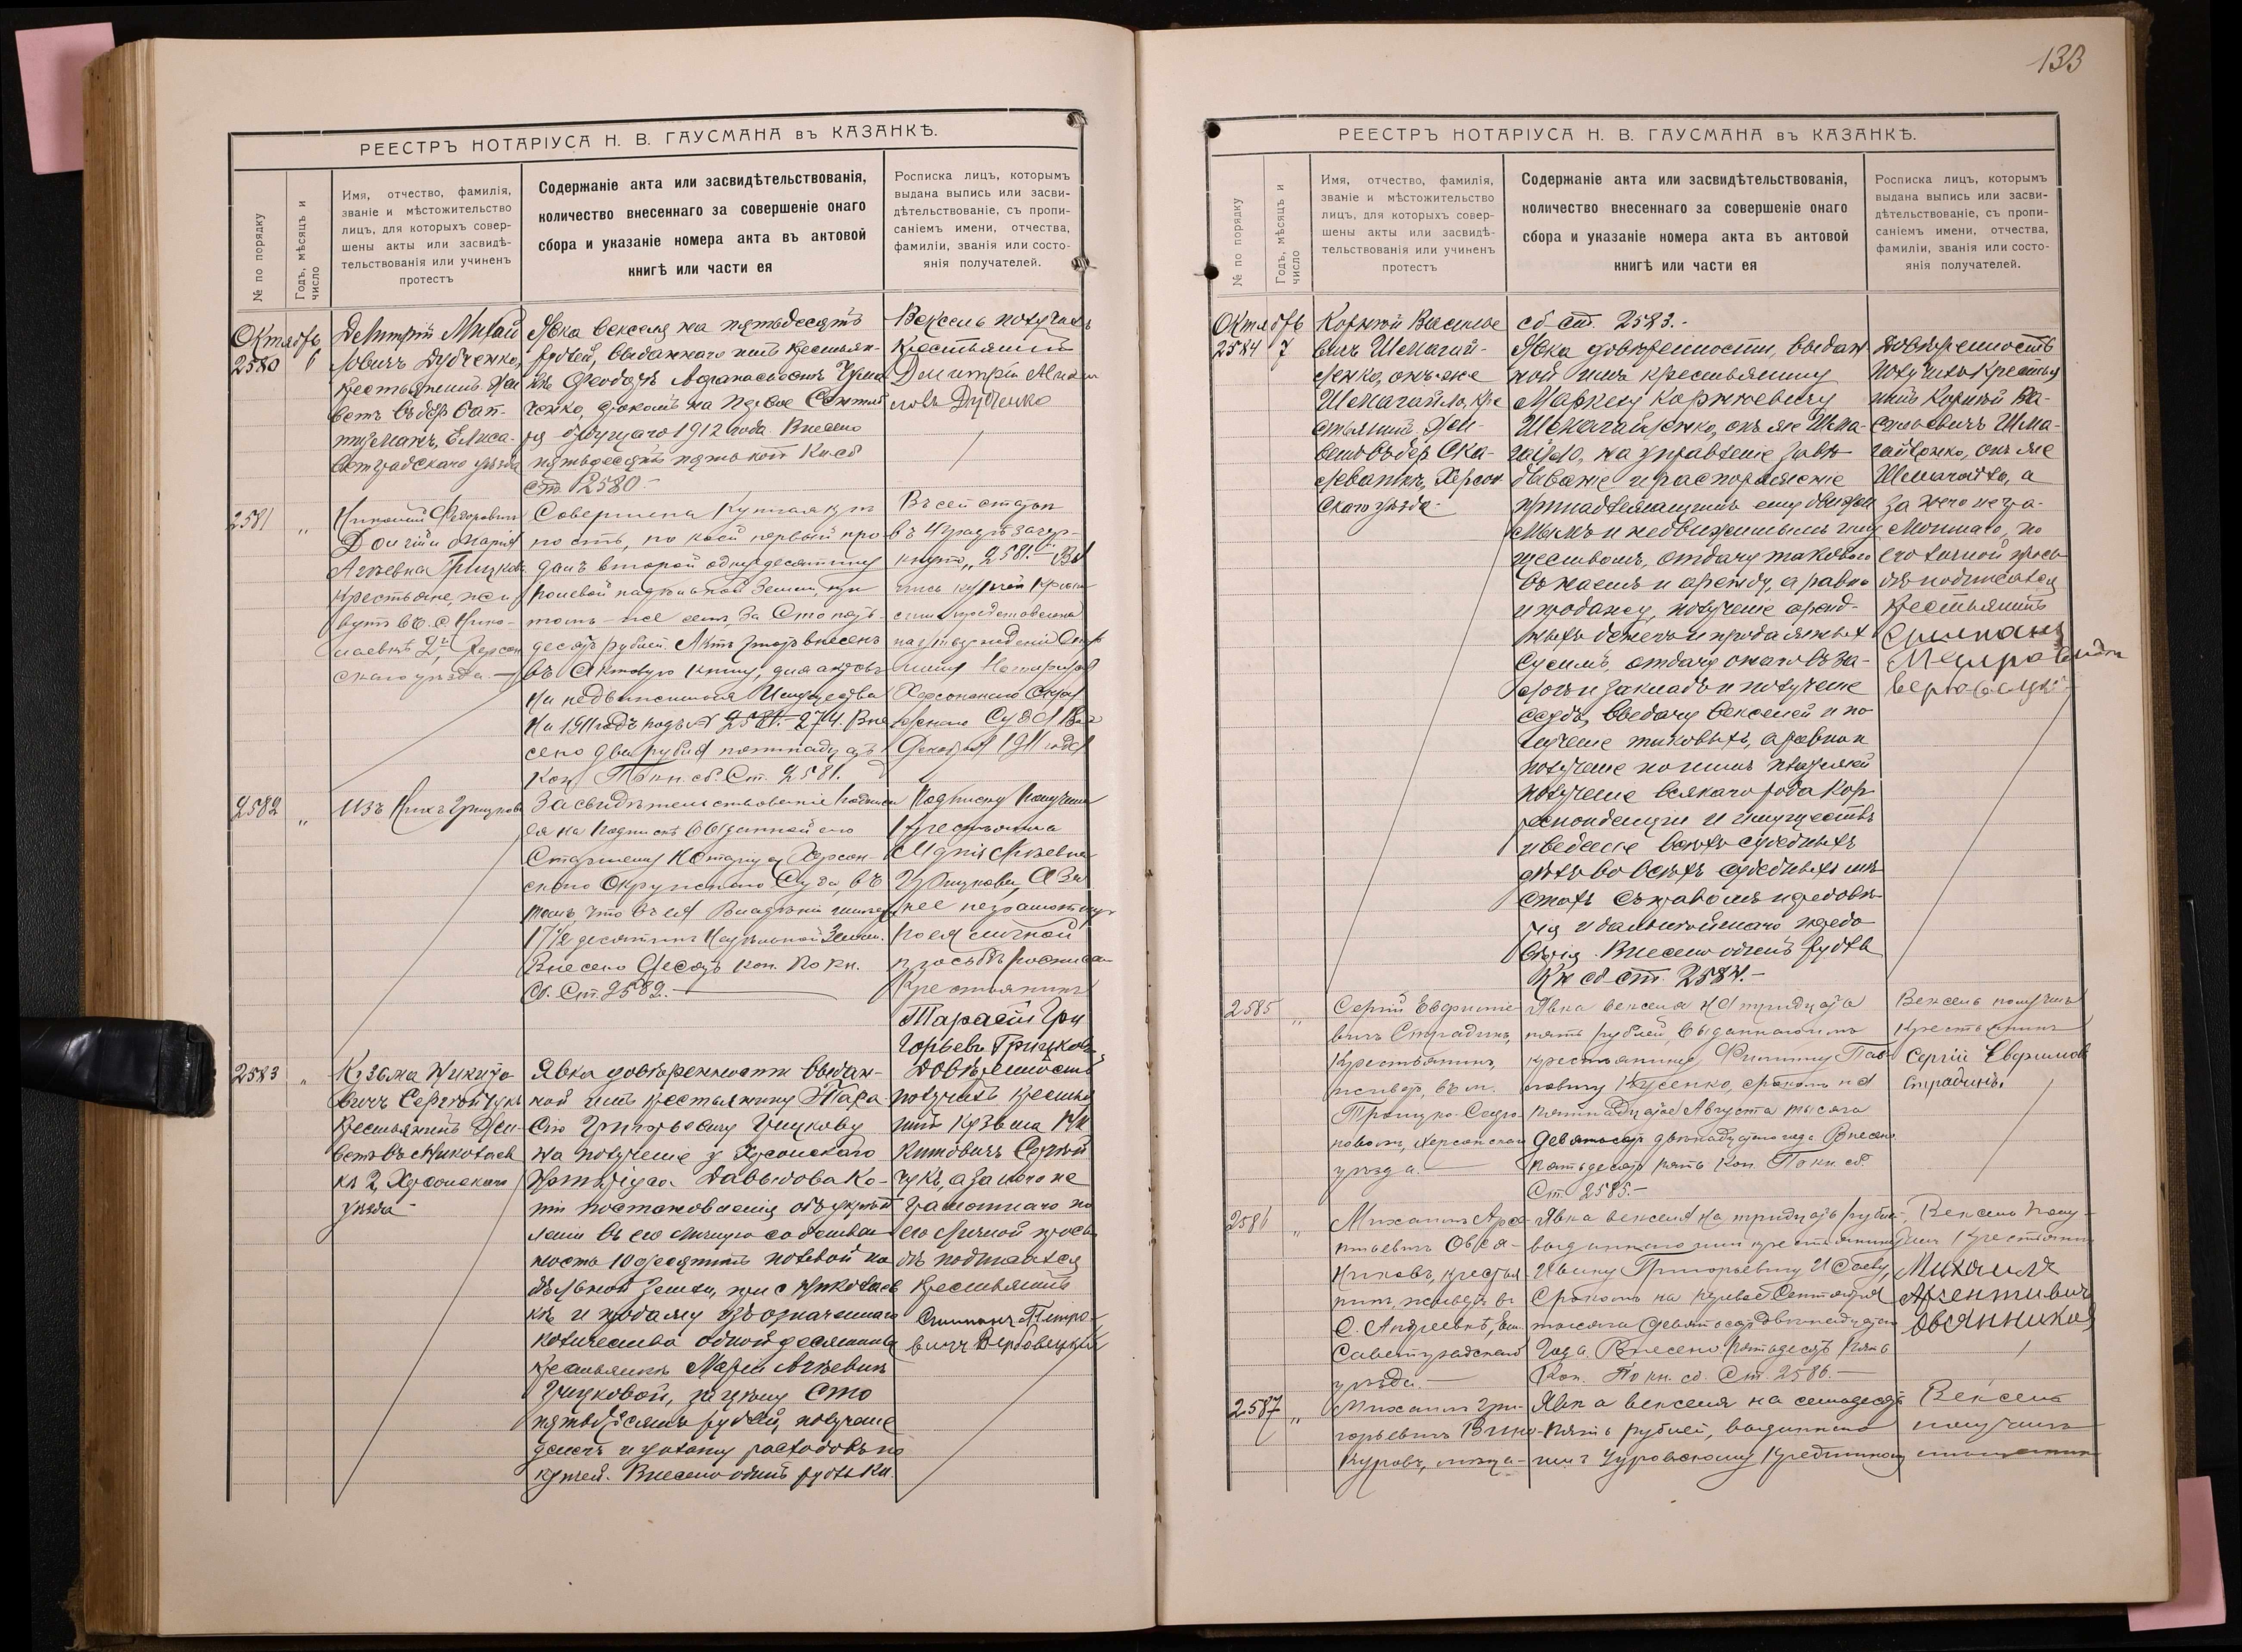 133
РЕЕСТРЪ НОТАРІУСА Н. В. ГАУСМАНА въ КАЗАНКѢ.
№ по порядку
Годъ, мѣсяцъ и
число
Имя, отчество, фамилія,
званіе и мѣстожительство
лицъ, для которыхъ совер-
шены акты или засвидѣ-
тельствованія или учиненъ
протестъ
Содержаніе акта или засвидѣтельствованія,
количество внесеннаго за совершеніе онаго
сбора и указаніе номера акта въ актовой
книгѣ или части ея
Росписка лицъ, которымъ
выдана выпись или засви-
дѣтельствованіе, съ пропи-
саніемъ имени, отчества,
фамиліи, званія или состо-
янія получателей.
Октябрь
2580 6
Дубченко,
Явка векселя на пятьдесятъ
рублей, выданнаго имъ крестьян-
срокомъ на первое
будущаго 1912 года. Внесено
пятьдесятъ пять коп Кн сб
ст 2580 -
Вексель получилъ
Крестьянинъ
Дмитрій
Дубченко
2581 "
Марія
Агѣевна
крестьяне, жи-
вутъ въ с Нико-
скаго уѣзда. -
Совершена Купчая крѣ-
пость, по коей первый про-
далъ второй одну десятину
полевой надѣльной Земли, при
томъ-же селѣ, за Сто пять-
десятъ рублей. Актъ этотъ внесенъ
въ Актовую книгу, для актовъ
На 1911 годъ подъ № 2581. - 274. Вне-
сено два рубля пятнадцать
Коп. По кн. сб. Ст. 2581.
Въ сей статьѣ
въ 4 графѣ зачер-
кнуто „2581.-"
Херсонскаго Окру-
жнаго Суда
1911 года
2582 "
Засвидѣтельствованіе подписи
ея на подпискѣ выданной ею
Старшему Нотаріусу Херсон-
скаго Окружнаго Суда, въ
томъ, что въ ея Владѣніи
17 1/2 десятинъ Надѣльной Земли.
Внесено Десять коп. По кн.
Сб. Ст. 2582. -
Подписку Получила
Крестьянка
Марія Агѣевна
по ея личной
просьбѣ
Крестьянинъ
Тарасій Гри
горьевъ Грицковъ
2583 "
Кузьма Никито-
вичъ
Крестьянинъ
Херсонскаго
уѣзда -
Явка довѣренности выдан-
ной имъ крестьянину Тара-
сію Григорьевичу Грицкову
на полученіе у Херсонскаго
Нотаріуса Давыдова Ко-
піи постановленія объ укрѣп-
леніи въ его личную собствен-
ность 10 десятинъ полевой на-
дѣльной земли, при с Николаев-
кѣ и продажу изъ означеннаго
количества одной десятины
крестьянкѣ Маріи Агѣевнѣ
Грицковой, за цѣну сто
пятьдесятъ рублей, полученіе
денегъ и уплату расходовъ по
купчей. Внесено одинъ рубль Кн.
Довѣренность
получилъ крестья-
нинъ Кузьма Ни-
китовичъ
чукъ, а за него не
грамотнаго по
его личной прось-
бѣ подписался
Крестьянинъ
Степанъ Петро-
вичъ Вербовецкій
РЕЕСТРЪ НОТАРІУСА Н. В. ГАУСМАНА въ КАЗАНКѢ.
№ по порядку
Годъ, мѣсяцъ и
число
Имя, отчество, фамилія,
званіе и мѣстожительство
лицъ, для которыхъ совер-
шены акты или засвидѣ-
тельствованія или учиненъ
протестъ
Содержаніе акта или засвидѣтельствованія,
количество внесеннаго за совершеніе онаго
сбора и указаніе номера акта въ актовой
книгѣ или части ея
Росписка лицъ, которымъ
выдана выпись или засви-
дѣтельствованіе, съ пропи-
саніемъ имени, отчества,
фамиліи, званія или состо-
янія получателей.
Октябрь
сб ст. 2583. -
2584 7
Корній Василье
вичъ Шмагай-
ленко, онъ же
Шмагайло, кре
стьянинъ,
Херсон
скаго уѣзда -
Явка довѣренности, выдан
ной имъ крестьянину
Маркелу Корніевичу
Шмагайленко, онъ же Шма-
гайло, на управленіе завѣ-
дываніе и распоряженіе
принадлежащимъ ему движи
мымъ и недвижимымъ иму
ществомъ, отдачу таковаго
въ наемъ и аренду, а равно
и продажу, полученіе аренд-
ныхъ денегъ и продажныхъ
суммъ, отдачу онаго въ за-
логъ и закладъ и полученіе
ссудъ, выдачу векселей и по
лученіе таковыхъ, а равно и
полученіе по нимъ платежей
полученіе всякаго рода кор-
респонденціи и имуществъ
и веденіе всѣхъ судебныхъ
дѣлъ во всѣхъ судебныхъ мѣ-
стахъ съ правомъ передовѣ-
рія и дальнѣйшаго передо-
вѣрія. Внесено одинъ рубль
Кн сб ст. 2584. -
Довѣренность
получилъ Крестья
нинъ Корній Ва-
сильевичъ Шма-
гайленко, онъ же
Шмагайло, а
за него негра-
мотнаго, по
его личной прось
бѣ подписался
Крестьянинъ
Степанъ
Петровичъ
Вербовецкій
2585 "
Сергій Евфиміе
вичъ Страдинъ,
Крестьянинъ,
Херсонскаго
уѣзда. -
Явка векселя на тридцать
пять рублей, выданнаго имъ
крестьянину Филиппу Пав-
ловичу Кусенко, срокомъ на
пятнадцатое Августа тысяча
девятьсотъ двѣнадцатаго года. Внесено
пятьдесятъ пять Коп. По кн. сб.
Ст. 2585. -
Вексель получилъ
Крестьянинъ
Сергій Евфимовъ
Страдинъ
2586 "
Михаилъ Арсе-
нтьевичъ Овся-
никовъ, крестья
нинъ, живетъ въ
С. Андреевкѣ, Ели-
саветградскаго
уѣзда. -
Явка векселя на тридцать рублей,
выданнаго имъ крестьянину
Ивану Григорьевичу Исаеву,
срокомъ на первое Сентября
тысяча девятьсотъ двѣнадцатаго
Года. Внесено пятьдесятъ пять
Коп. По кн. сб. Ст. 2586. -
Вексель полу-
чилъ Крестьянинъ
Михаилъ
Арсентивичъ
Овсянниковъ
2587 "
Михаилъ Гри-
горьевичъ Вино-
куровъ, мѣща-
Явка векселя на семьдесятъ
пять рублей, выданнаго
имъ Гуровскому Кредитному
Вексель
получилъ